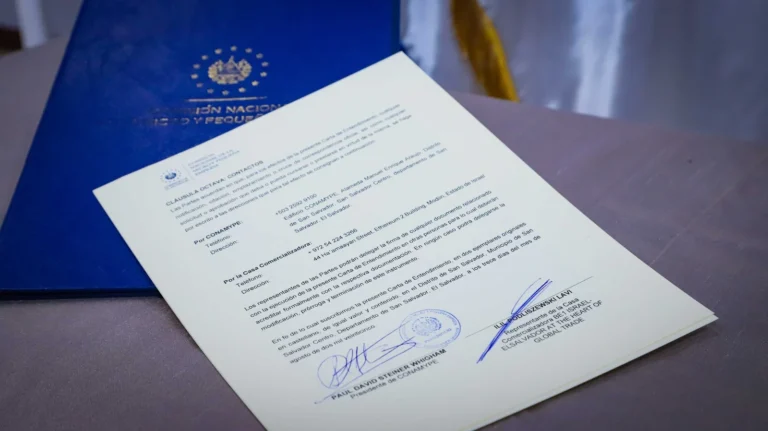 COMISIÓN NACIONAL
CLÁUSULA OCTAVA: CONTACTOS
Las Partes acuerdan que para los efectos de la presente Carta de Entendimiento, cualquier
por escrito a las direcciones que para tal efecto se consignan a continuación:
Por CONAMYPE:
Teléfono: +503 2592 9100
Dirección: Edificio CONAMYPE, Alameda Manuel Enrique Araujo, Distrito
de San Salvador, San Salvador Centro, departamento de San
Salvador, El Salvador.
Por la Casa Comercializadora:
Teléfono: + 972 54 224 3266
Dirección: 44 Street, 2 Building, Estado de Israel
Los representantes de las Partes podrán delegar la firma de cualquier documento relacionado
con la ejecución de la presente Carta de Entendimiento en otras personas para lo cual deberán
acreditar formalmente con la respectiva documentación. En ningún caso podrá delegarse la
modificación, prórroga y terminación de este instrumento.
En fe de lo cual suscribimos la presente Carta de Entendimiento, en dos ejemplares originales
en castellano, de igual valor y contenido, en el Distrito de San Salvador, Municipio de San
Salvador Centro, Departamento de San Salvador, El Salvador, a los trece días del mes de
agosto de dos mil veinticinco.
PAUL DAVID STEINER WHIGHAM
Presidente de CONAMYPE
ILIL PODLISZEWSKI LAVI
Representante de la Casa
Comercializadora BE1 ISRAEL
ELSALVADOR AT THE HEART OF
GLOBAL TRADE